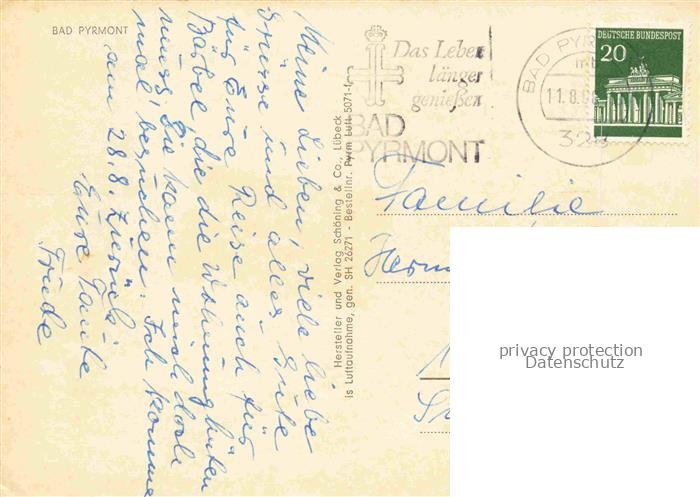 BAD PYRMONT
Meine Lieben, viele liebe
Grüsse und alles Gute
für Eure Reise auch für
Bärbel die die Wohnung hüten
muss. Sie kann mich doch
mal besuchen. Ich komme
am 28.8. zurück.
Eure Tante
Friede
Hersteller und Verlag Schöning & Co., Lübeck
is Luftaufnahme, gen. SH 26271 - Bestellnr. Pyrm Luft 5071-
Das Leben
länger
genießen
BAD
PYRMONT
BAD PYR
11.8.
328
DEUTSCHE BUNDESPOST
20
Familie
Herm
privacy protection
Datenschutz